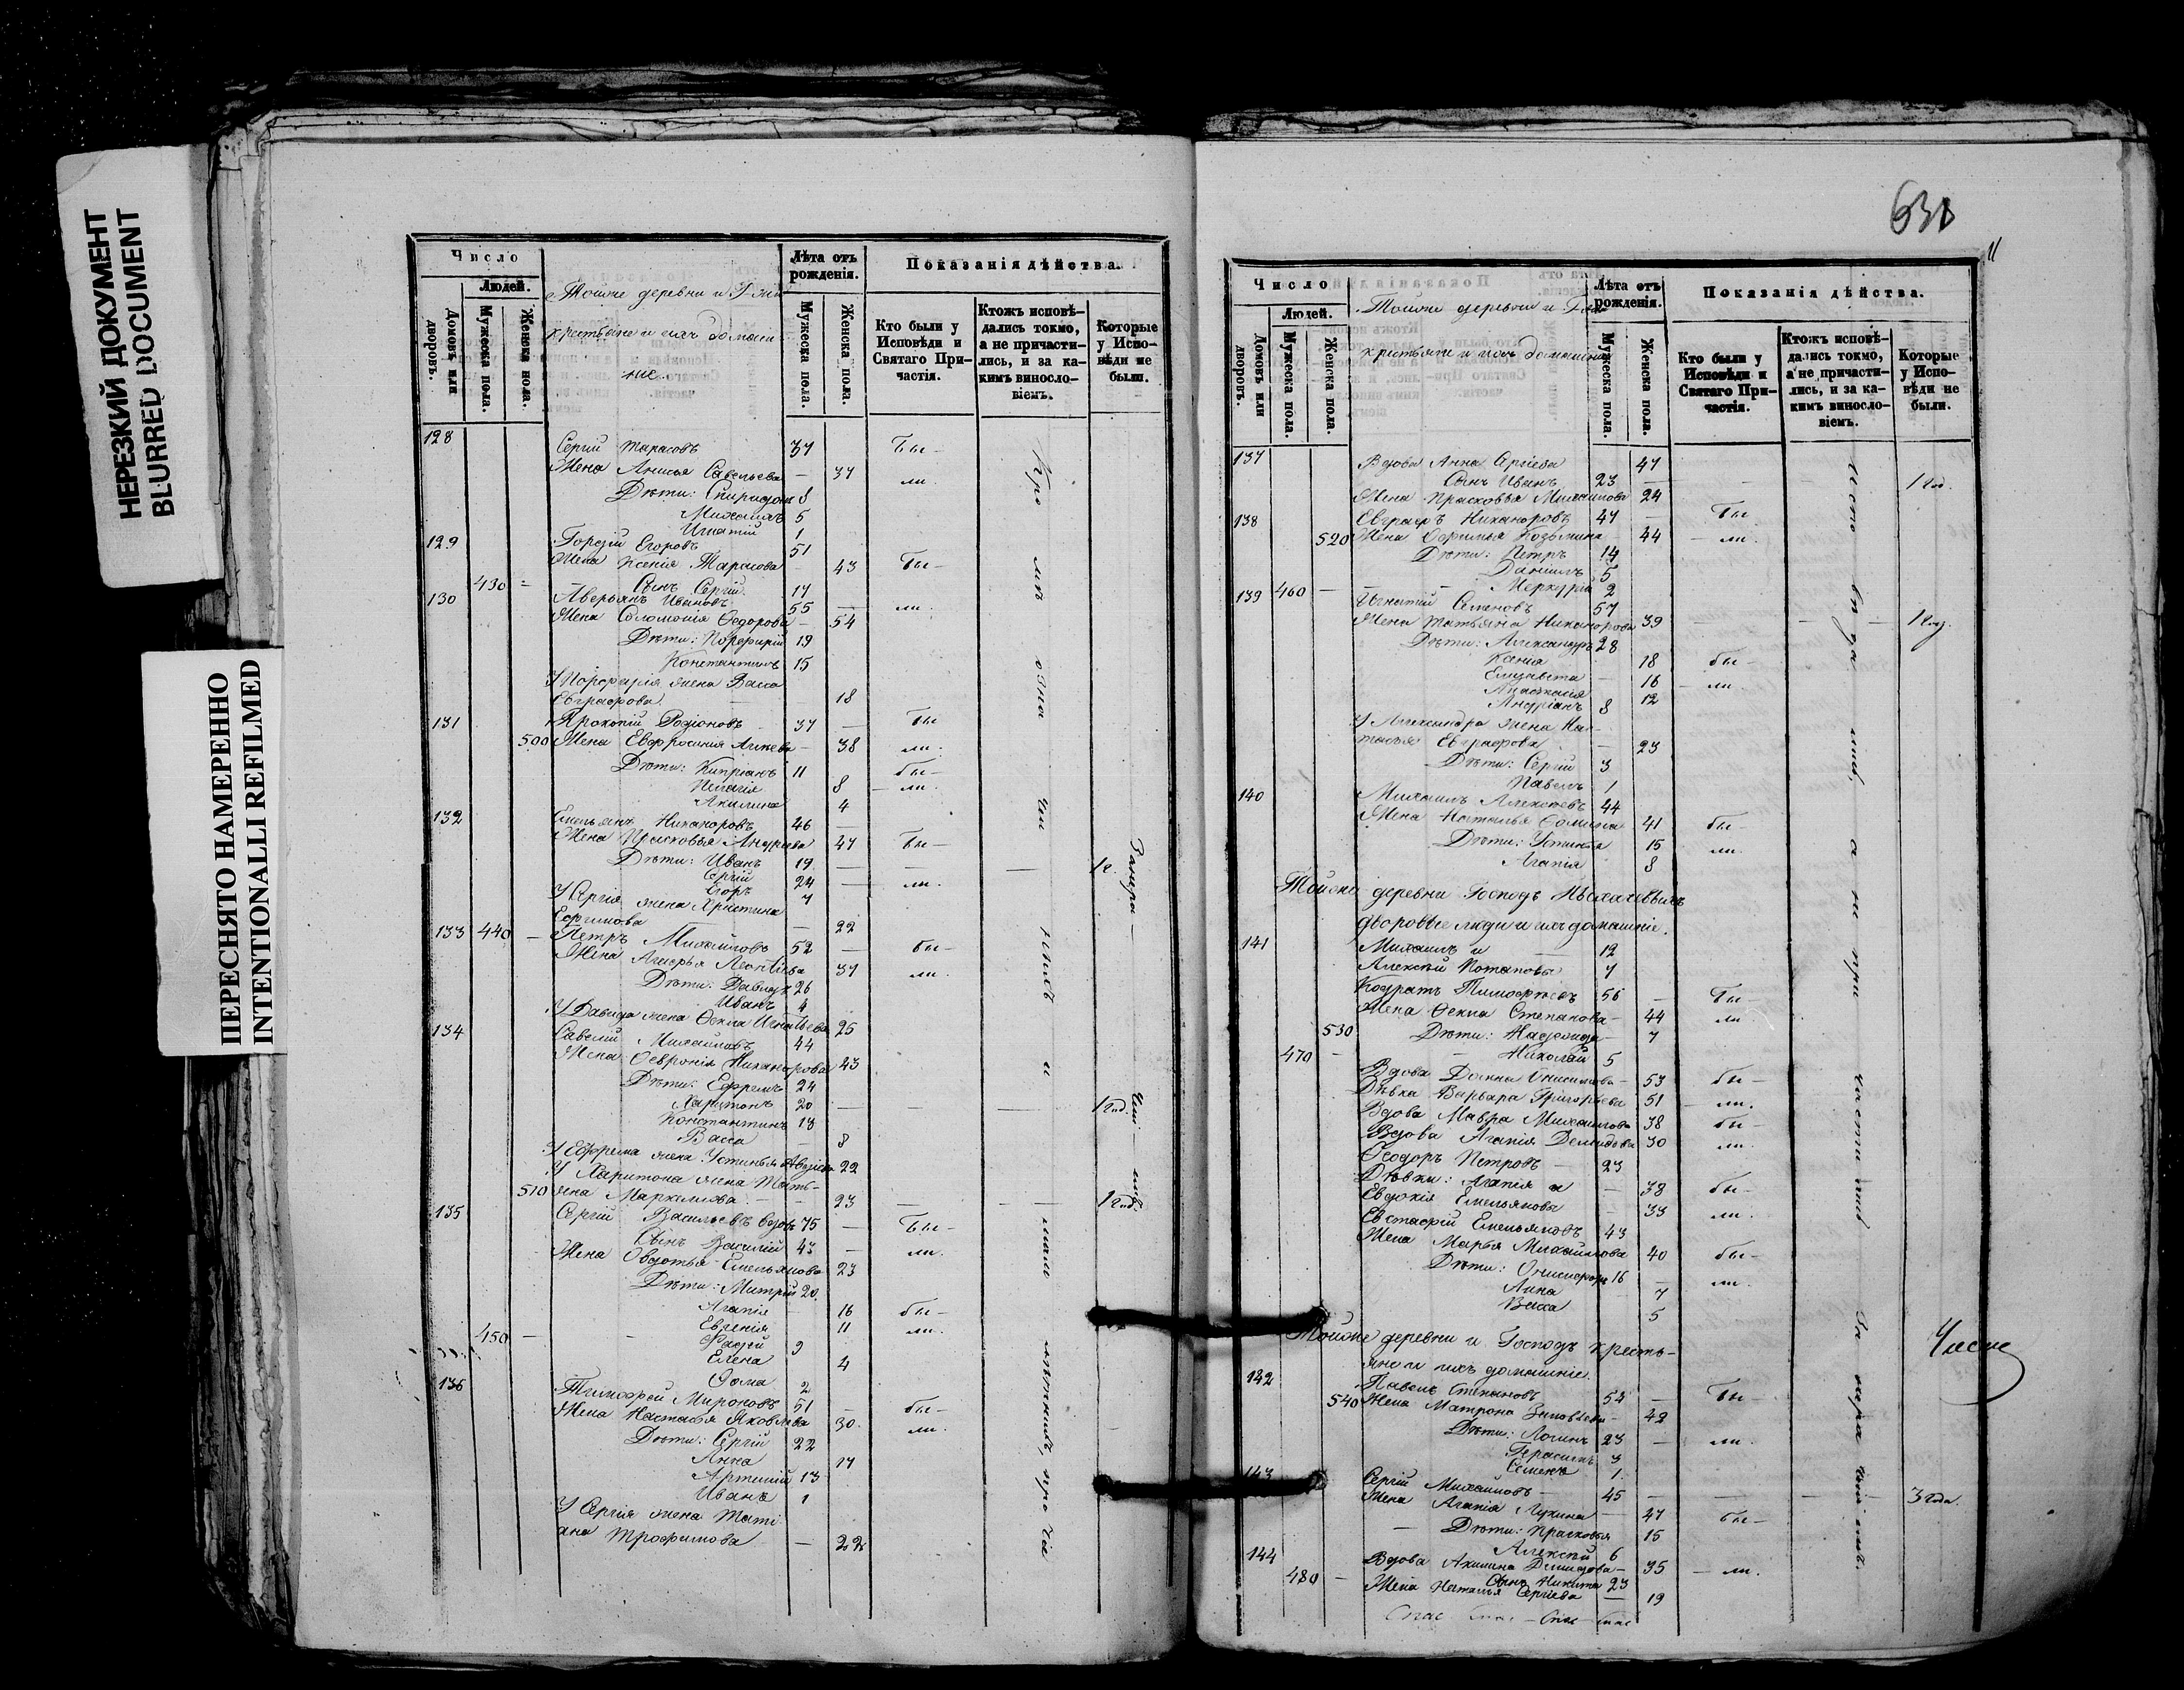 НЕРЕЗКИЙ ДОКУМЕНТ
BLURRED DOCUMENT
ПЕРЕСНЯТО НАМЕРЕННО
INTENTIONALLI REFILMED
Число
Людей.
Домовъ или дворовъ.
Мужеска пола.
Женска пола.
Тойже деревни и
крестьяне и ихъ домаш
ніе.
Лѣта отъ рожденія.
Мужеска пола.
Женска пола.
Показанія дѣйства.
Кто были у Исповѣди и Святаго Причастія.
Ктожъ исповѣдались токмо, а не причастились, и за какимъ винословіемъ.
Которые у Исповѣди не были.
128 Сергій Тарасовъ 37 Бы-
Жена Анисья Савельева — 37 ли.
Дѣти: Спиридонъ 8
Михаилъ 5
Игнатій 1
129 Гордѣй Егоровъ 51
Жена Ксенія Тарасова 43 Бы-
430 Сынъ Сергій 17
130 Аверьянъ Ивановъ 55 — ли.
Жена Соломонія Ѳедорова — 54
Дѣти: Порфирій 19
Константинъ 15
У Порфирія жена Васса
Евграфова 18
131 Прокопій Родіоновъ 37 — бы
500 Жена Евфросинія — 38 ли.
Дѣти: Кипріанъ 11 бы-
Пелагія 8 — ли.
Акилина 4
132 Емельянъ Никаноровъ 46 —
Жена Прасковья Андреева 47 Бы-
Дѣти: Иванъ 19 — — 1 г.
Сергій 24 — ли.
Егоръ 7
У Сергія жена Христина
— 22
133 440 — Петръ Михайловъ 52 — бы-
Жена Агафья Леонтіева 37 ли.
Дѣти: Давидъ 26
Иванъ 4
У Давида жена Ѳекла Игнатьева 25
134 Савелій Михайловъ 44
Жена: Ѳевронія Никанорова 43
Дѣти: Ефремъ 24
Харитонъ 20 — — 1 год.
Константинъ 13
Васса — 8
У Ефрема жена Устинья 22
У Харитона жена Тать-
510 яна Маркилова — 23 — — 1 год.
135 Сергій Васильевъ вдовъ 75 — Бы-
Сынъ Василій 43 — ли.
Жена Овдотья Емельянова 23
Дѣти: Митрій 20
Агапія 16 бы-
Евгенія 11 ли.
450 — — Фадѣй 9
Елена 4
Ѳома 2
136 Тимофей Мироновъ 51 — бы-
Жена Настасья Яковлева 30 ли.
Дѣти: Сергій 22
Анна 17
Артемій 13
Иванъ 1
У Сергія жена Тати
ана Трофимова — 22
631
11
Число
Людей.
Домовъ или дворовъ.
Мужеска пола.
Женска пола.
Тойже деревни и
крестьяне и ихъ домашніе
Лѣта отъ рожденія.
Мужеска пола.
Женска пола.
Показанія дѣйства.
Кто были у Исповѣди и Святаго Причастія.
Ктожъ исповѣдались токмо, а не причастились, и за какимъ винословіемъ.
Которые у Исповѣди не были.
137 Вдова Анна Сергіева 47
Сынъ Иванъ 23 — — — 1 год.
Жена Прасковья Михайлова 24
138 Евграфъ Никаноровъ 47 — бы
520 Жена Козьмина 44 — ли.
Дѣти: Петръ 14
Даніилъ 5
— Меркурій 2
139 460 — Игнатій Семеновъ 57
Жена Татьяна Никанорова 39 — — — 1 год.
Дѣти: Александръ 28
Ксенія 18 бы-
Елизавета — 16 — ли.
Анастасія 12
Андріанъ 8
У Александра жена На-
талья Евграфова — 23
Дѣти: Сергій 3
Павелъ 1
140 Михаилъ Алексѣевъ 44
Жена Наталья Ѳомина 41 бы-
Дѣти: Устинья 15 ли.
Агапія 8
Тойже деревни Господъ
дворовые люди и ихъ домашніе.
141 Михаилъ и — 12
Алексѣй Потаповы 7
Кодратъ Тимофѣевъ 56 — Бы-
Жена Ѳекла Степанова — 44 ли
530 Дѣти: Надежда 7
470 — — Николай 5
Вдова Домна Онисимова — 53 бы-
Дѣвка Варвара Григорьева 51 — ли.
Вдова Мавра Михайлова 38 бы-
Вдова Агапія Демидова 30 ли.
Ѳеодоръ Петровъ — 23
Дѣвки: Агапія и — 38 бы-
Евдокія Емельяновы — 33 ли.
Евстафій Емельяновъ 43
Жена Марья Михайлова 40 бы-
Дѣти: Онисифоръ 16 — ли.
Анна 7
Васса 5
Тойже деревни и Господъ кресть-
яне и ихъ домашніе.
142 Павелъ Степановъ 54 — Бы-
540 Жена Матрона Зиновьева — 42
Дѣти: Логинъ 23 — ли.
Герасимъ 3
Семенъ 1
143 Сергій Михайловъ — 45 — — — 3 года.
Жена Агапія Лукина — 47 бы-
— Дѣти: Прасковья 15
Алексѣй 6
144 Вдова Акилина Демидова — 35 — ли.
480 — Сынъ Никита 23
Жена Наталья Сергіева — 19